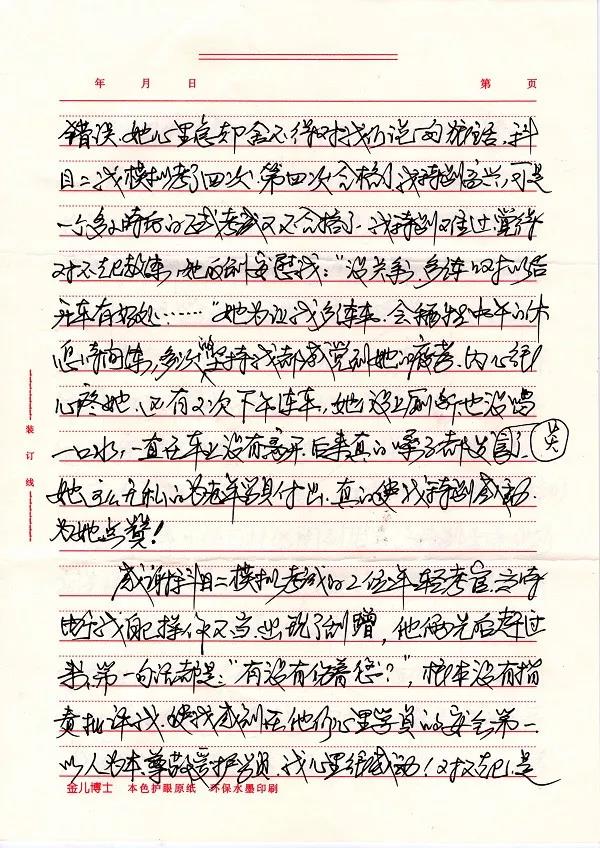 年 月 日 第 页
错误，她心里急却舍不得对我们说一句狠话，科
目二我模拟考了四次，第四次合格了，我特别高兴，可是
一个多小时后的正式考试又不合格了，我特别难过，觉得
对不起教练，她反倒安慰我："没关系，多练习对以后
开车有好处……"她为让我多练车，会牺牲中午的休
息时间练，多次坚持我都感觉到她的疲劳，内心很
心疼她，还有2次下午练车，她没上厕所也没喝
一口水，一直在车上没有离开，后来真的嗓子都冒了
她这么无私的为老年学员付出，真的使我特别感动，
为她点赞！
感谢科目二模拟考试的2位年轻考官，当时
由于我的操作不当，出现了剐蹭，他俩先后赶过
来，第一句话都是："有没有伤着您？"，根本没有指
责批评我，使我感到在他们心里学员的安全第一，
以人为本，尊敬爱护学员，我心里很感动！对不起，是
装订线
金儿博士 本色护眼原纸 环保水墨印刷